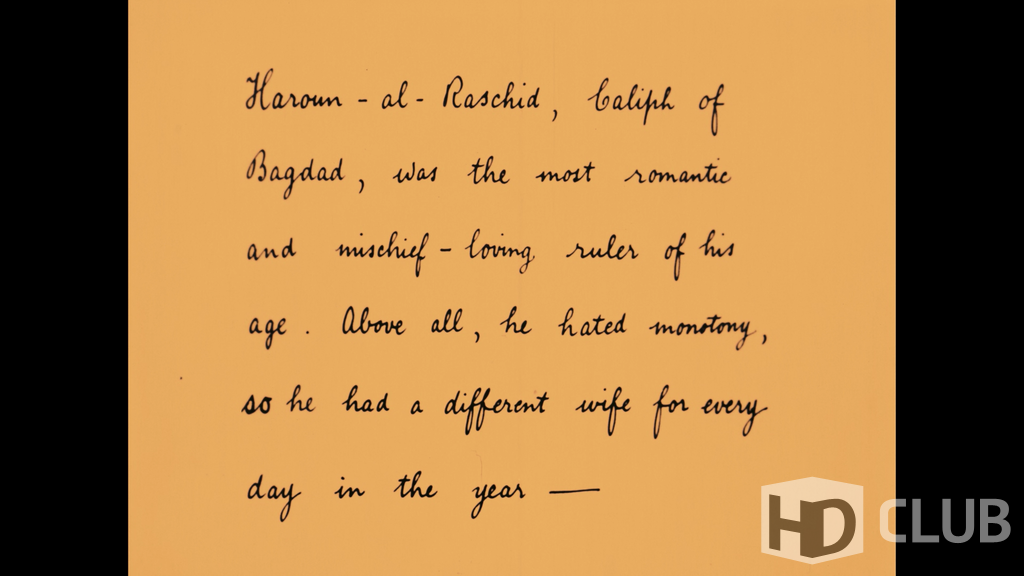 Haroun - al - Raschid, Caliph of
Bagdad, was the most romantic
and mischief - loving ruler of his
age. Above all, he hated monotony,
so he had a different wife for every
day in the year —
HD CLUB